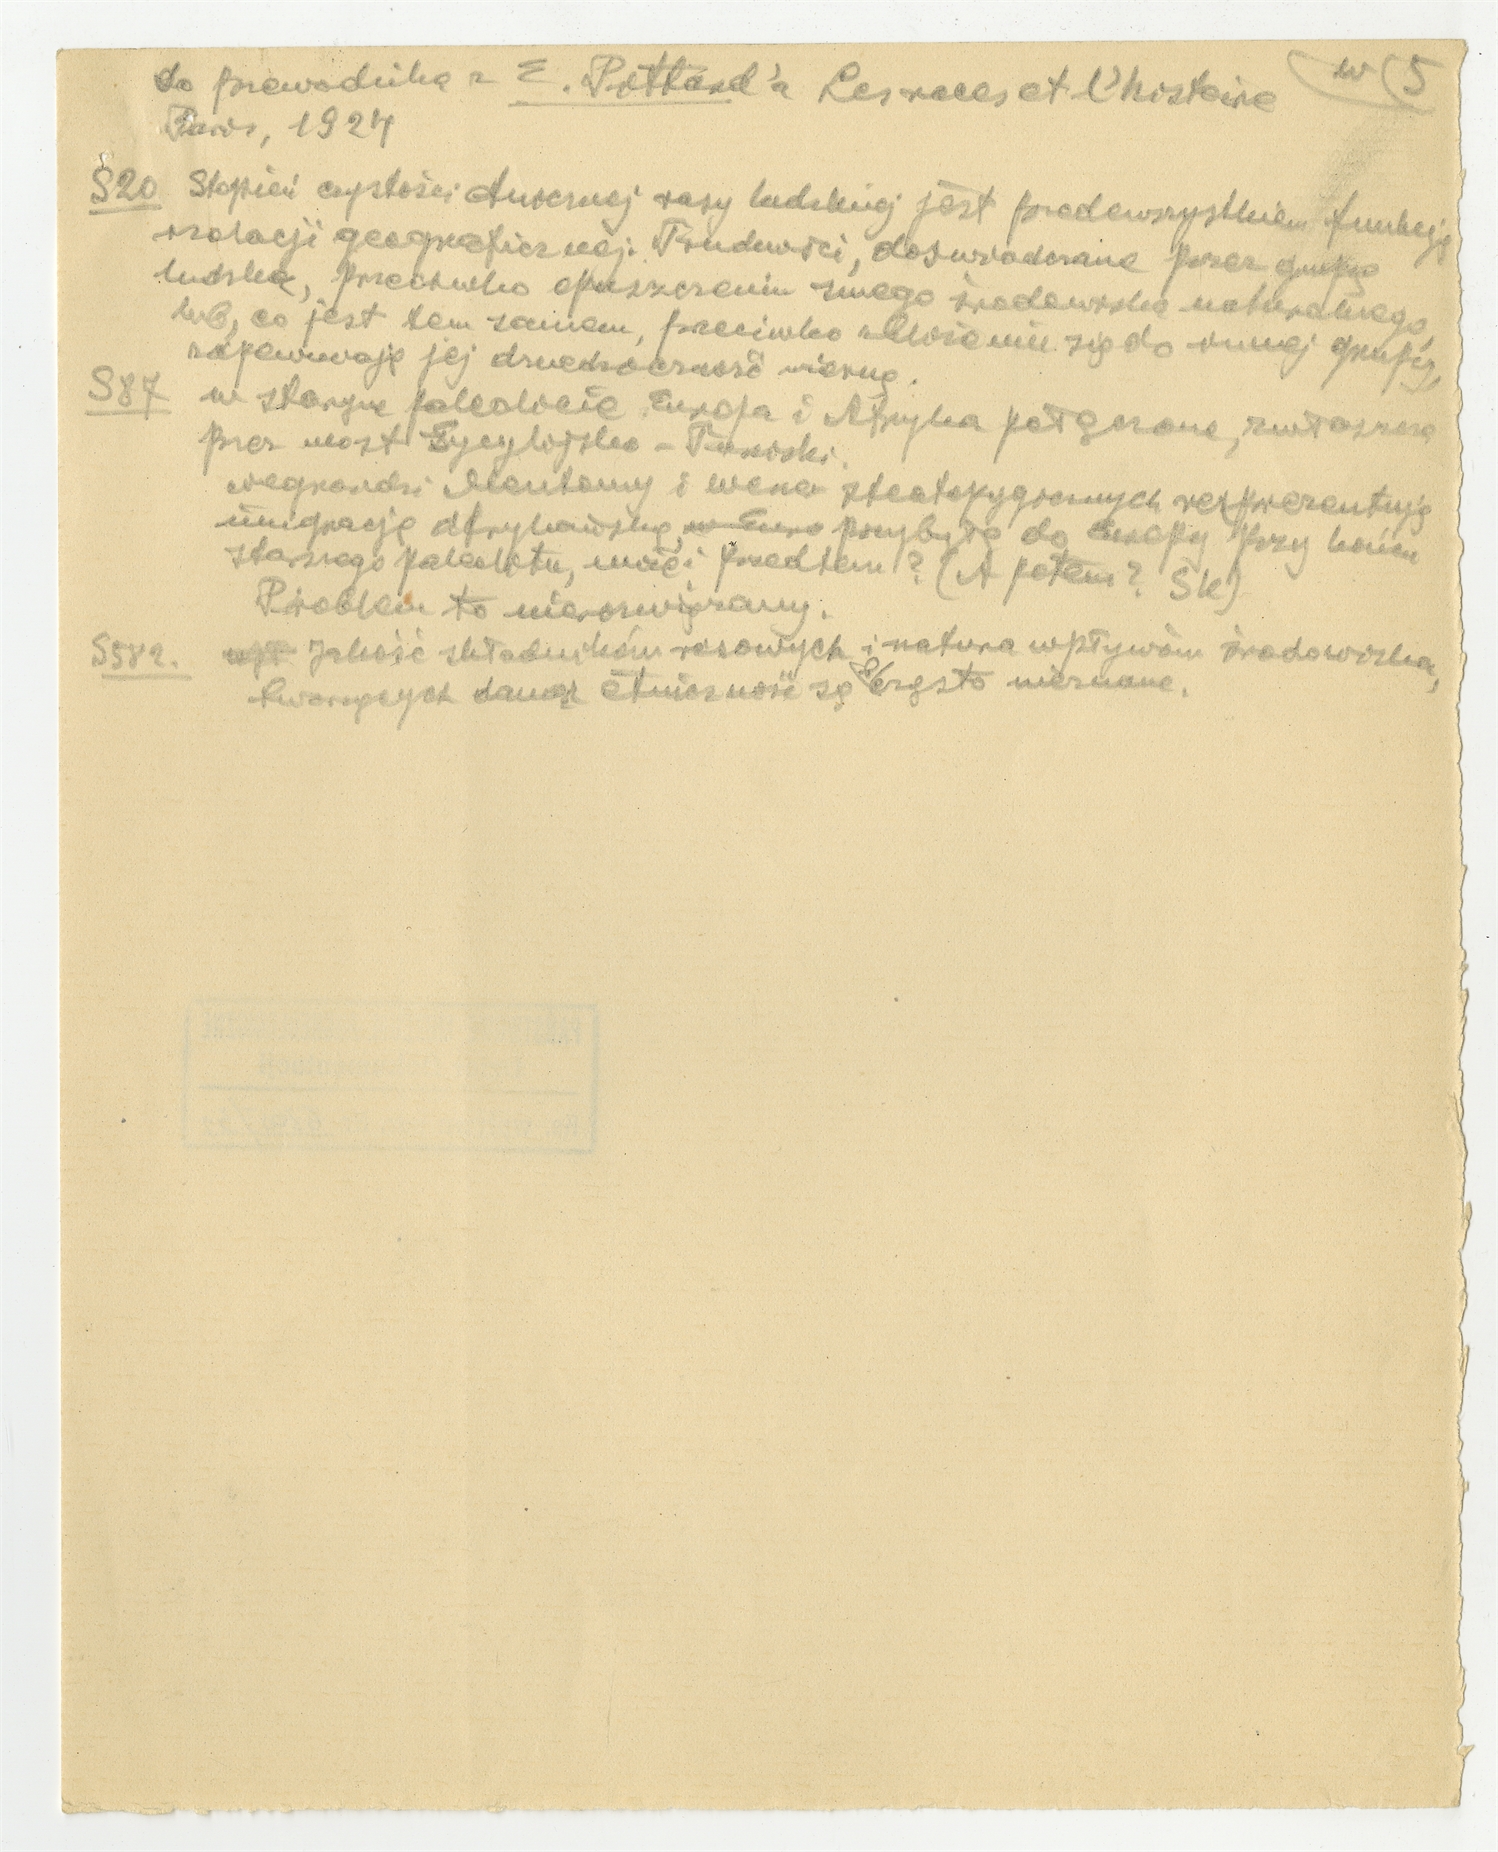 do przewodnika z E. Pittard'a Les races et l'histoire
w 5
Paris, 1924
S20 Stopień czystości dwóch rasy ludzkiej jest przedewszystkiem funkcją
izolacji geograficznej. Trudności, doświadczane przez grupę
ludzką, przeciwko opuszczeniu swego środowiska naturalnego,
lub, co jest tem samem, przeciwko zbliżeniu się do innej grupy,
zapewniają jej dziedziczność wierną.
S87 w starym paleolicie Europa i Afryka połączone, zwłaszcza
przez most Sycylijsko-Tuniski.
negroidzi Mentony i wener steatopygicznych reprezentują
imigrację afrykańską, w Euro przybyłą do Europy przy końcu
starszego paleolitu, może i przedtem? (A potem? SK)
Problem to nierozwiązany.
S582. wpł Jakość składników rasowych i natura wpływów środowiska,
tworzących daną etniczność są często nieznane.